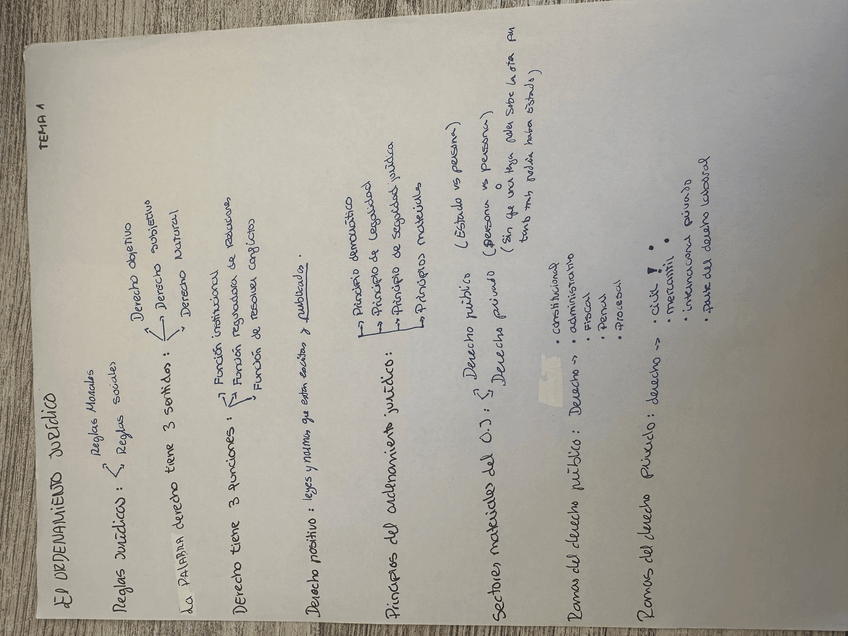 TEMA 1
El ORDENAMIENTO JURÍDICO
Reglas Morales
Reglas Jurídicas:
Reglas sociales
Derecho objetivo
La PALABRA derecho tiene 3 sentidos: → Derecho subjetivo
Derecho Natural
Función institucional
Derecho tiene 3 funciones: Función reguladora de relaciones
Función de resolver conflictos
Derecho positivo: leyes y normas que estan escritas y publicadas.
→ Principio democrático
→ Principio de legalidad
Principios del ordenamiento jurídico: → Principio de seguridad jurídica
→ Principios materiales
Derecho público (Estado vs persona)
Sectores materiales del O.J:
Derecho privado (persona vs persona)
(sin que una tenga poder sobre la otra
tanto podría haber Estado)
• constitucional
Ramas del derecho público: Derecho → • administrativo
• Fiscal
• Penal
• Procesal
Ramas del derecho privado: derecho → • civil !
• mercantil
• internacional privado
• parte del derecho laboral